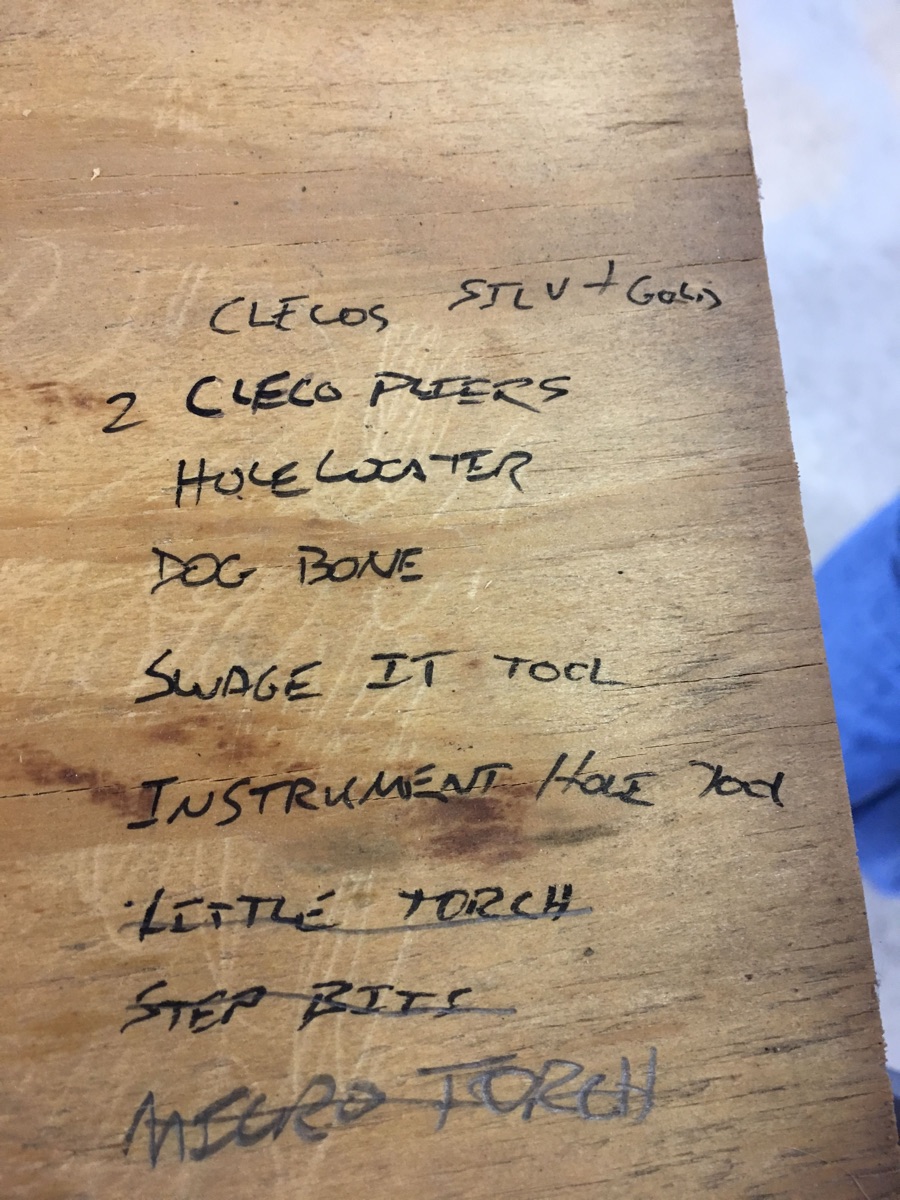 CLECOS SILV + GOLD
2 CLECO PLIERS
HOLE LOCATER
DOG BONE
SWAGE IT TOOL
INSTRUMENT HOLE TOOL
LITTLE TORCH
STEP BITS
MICRO TORCH